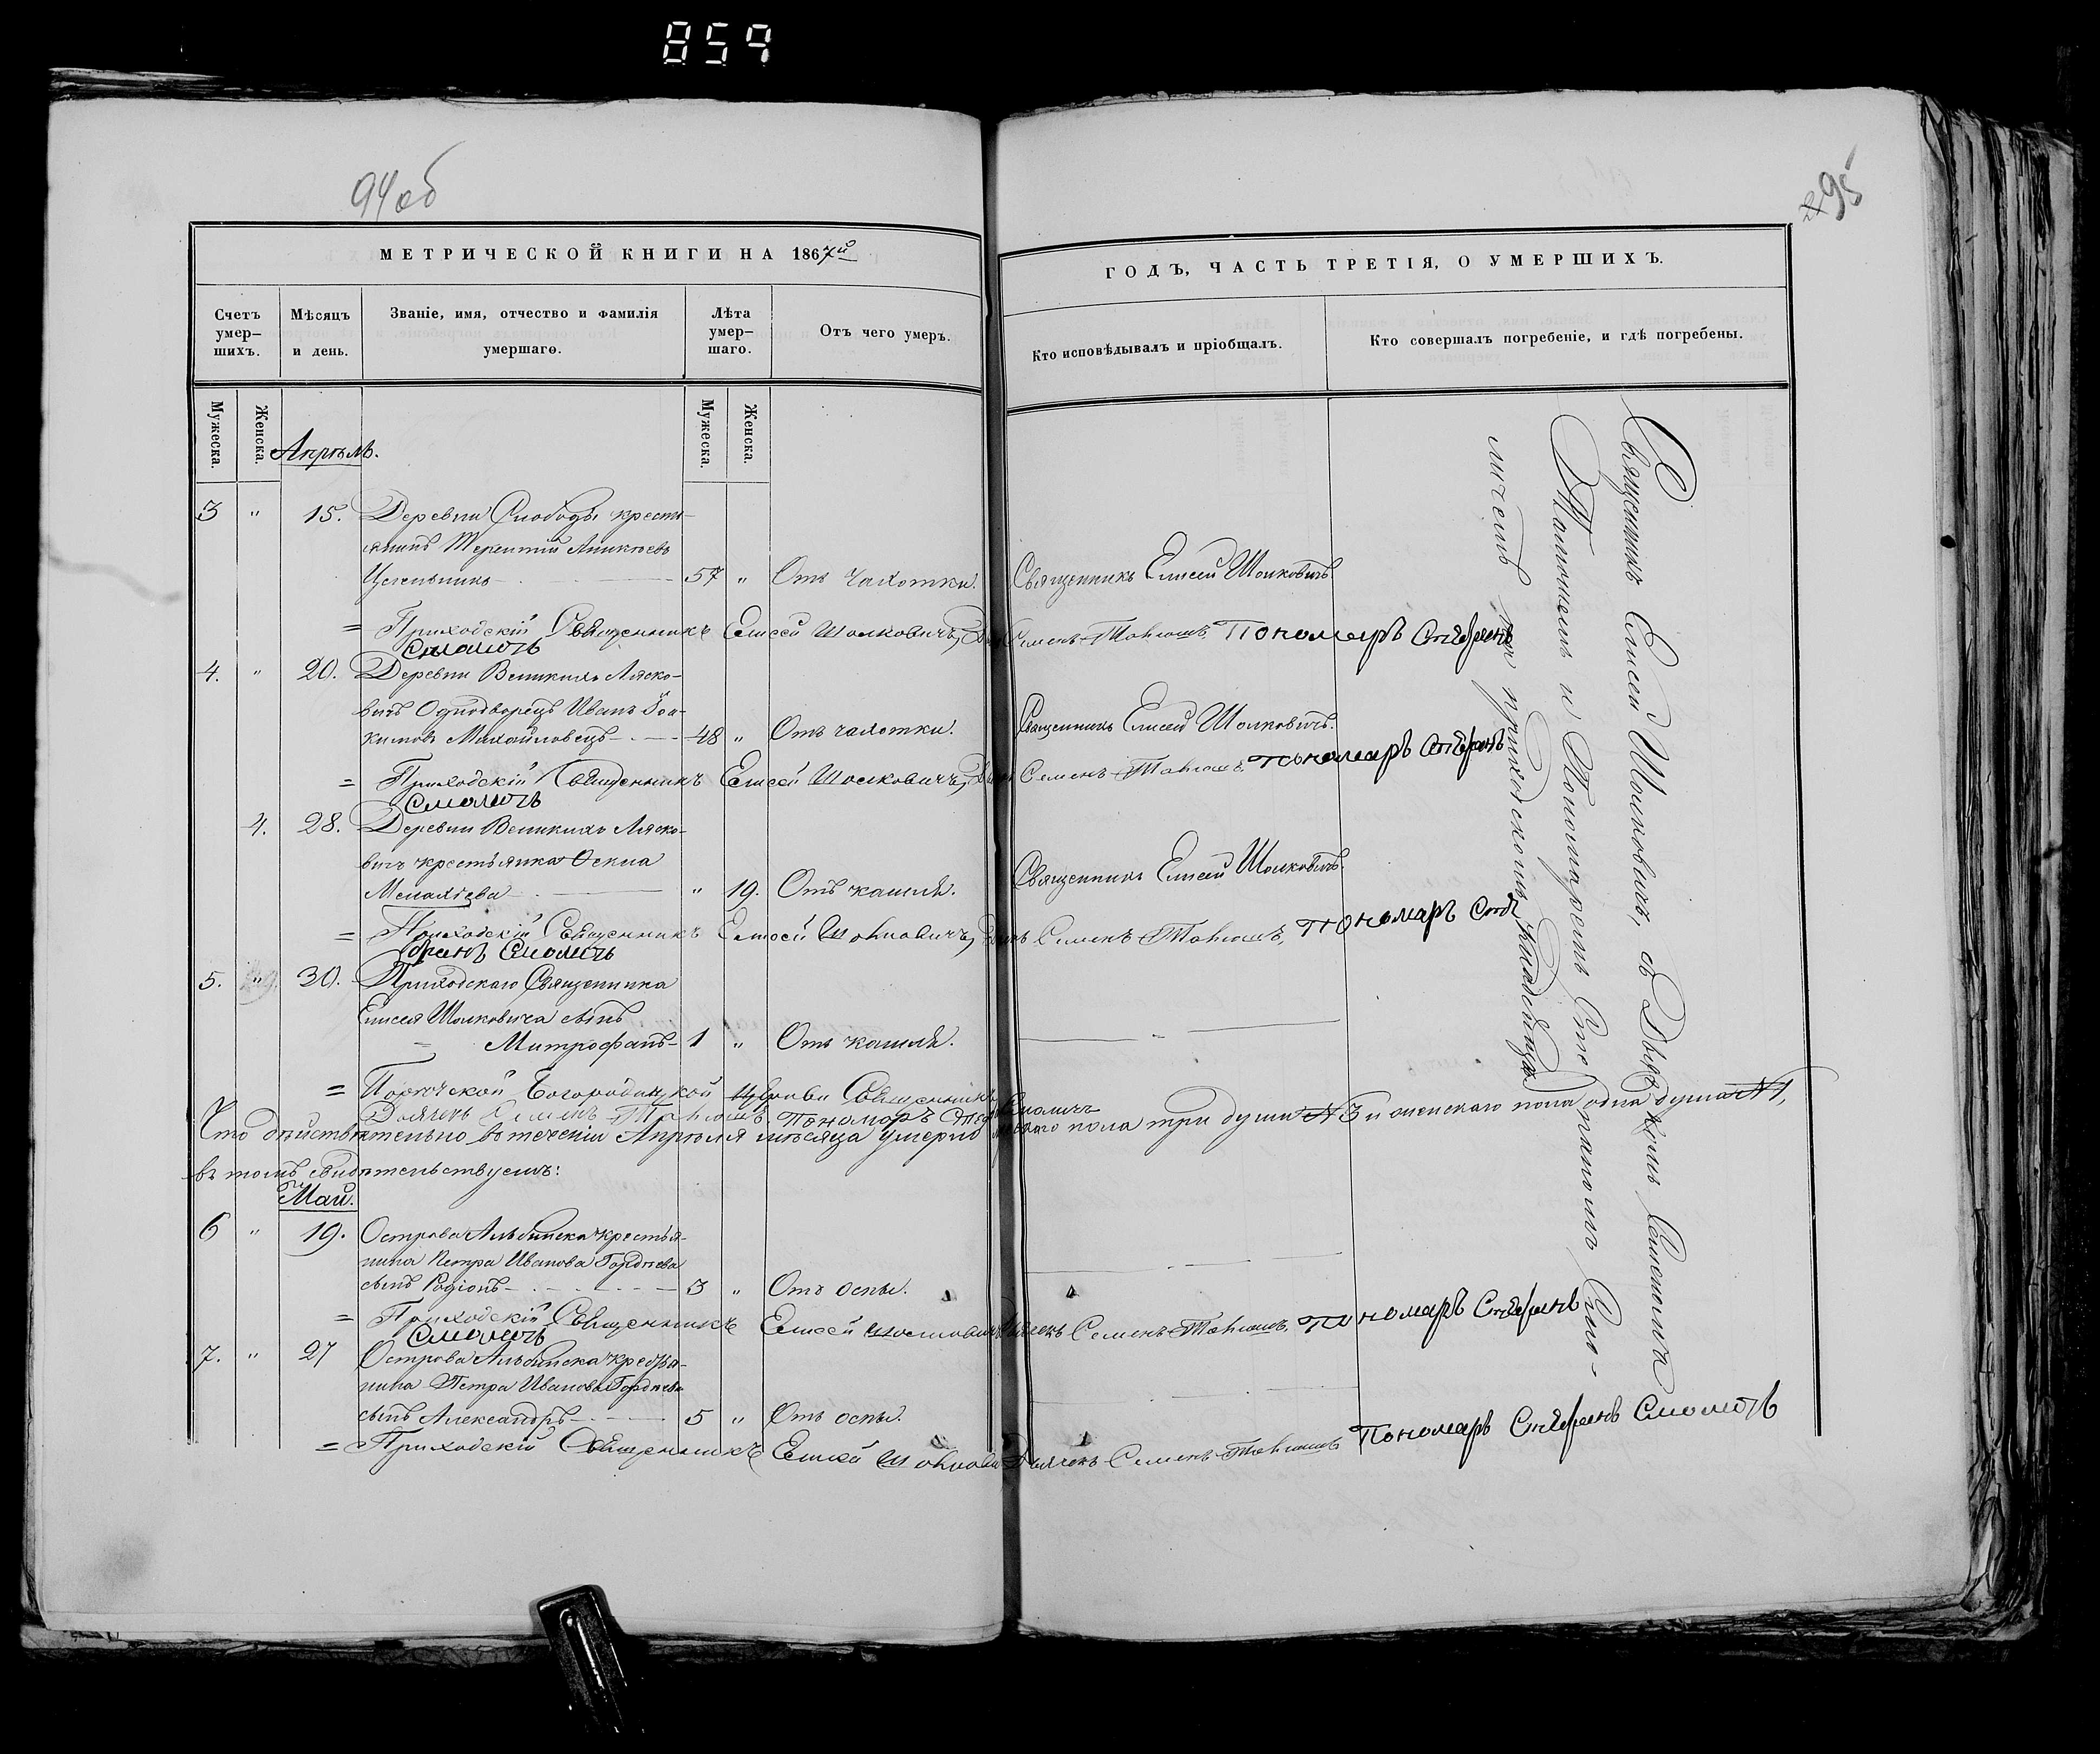 859
94 об
95
МЕТРИЧЕСКОЙ КНИГИ НА 1867й
ГОДЪ, ЧАСТЬ ТРЕТІЯ, О УМЕРШИХЪ.
Счетъ умер-шихъ.
Мѣсяцъ и день.
Званіе, имя, отчество и фамилія умершаго.
Лѣта умер-шаго.
Отъ чего умеръ.
Кто исповѣдывалъ и пріобщалъ.
Кто совершалъ погребеніе, и гдѣ погребены.
Мужеска.
Женска.
Мужеска.
Женска.
Апрѣль.
3 " 15. Деревни Слободы кресть-
янинъ Терентій Аникѣевъ
57 " Отъ чахотки. Священникъ Елисей Шолковичъ
= Приходскій Священникъ Елисей Шолковичъ, Семенъ Пономаръ Стефанъ
Смоличъ
4. " 20. Деревни Великихъ Ляско-
вичъ Однодворецъ Иванъ Іоа-
кимовъ Михайловецъ 48 " Отъ чахотки. Священникъ Елисей Шолковичъ.
= Приходскій Священникъ Елисей Шолковичъ, Семенъ Пономаръ Стефанъ
Смоличъ
4. 28. Деревни Великихъ Ляско-
вичъ крестьянка
" 19. Отъ кашля. Священникъ Елисей Шолковичъ.
= Приходскій Священникъ Елисей Шолковичъ, Семенъ Пономаръ Сте
фанъ Смоличъ
5. " 30. Приходскаго Священника
Елисея Шолковича сынъ
Митрофанъ 1 " Отъ кашля.
= Богородицкой Церкви Священникъ
Дьячекъ Семенъ Пономаръ Стеф Смоличъ
Что дѣйствительно въ теченіи Апрѣля мѣсяца умерло пола три души № 3 и женскаго пола одна душа № 1,
въ томъ свидѣтельствуемъ:
Май.
6 " 19. Острова Альбинска крестья-
нина Петра Иванова Гордѣева
сынъ Родіонъ 3 " Отъ оспы.
= Приходскій Священникъ Елисей Шолковичъ Дьячекъ Семенъ Пономаръ Стефанъ
Смоличъ
7. " 27 Острова Альбинска крестья-
нина Петра Иванова Гордѣева
сынъ Александръ 5 " Отъ оспы.
= Приходскій Священникъ Елисей Дьячекъ Семенъ Пономаръ Стефанъ Смоличъ
Священникъ Елисей Шолковичъ, съ Дьячкомъ Семеномъ
и Пономаремъ Стефаномъ Смо-
личемъ на приходскомъ кладбищѣ